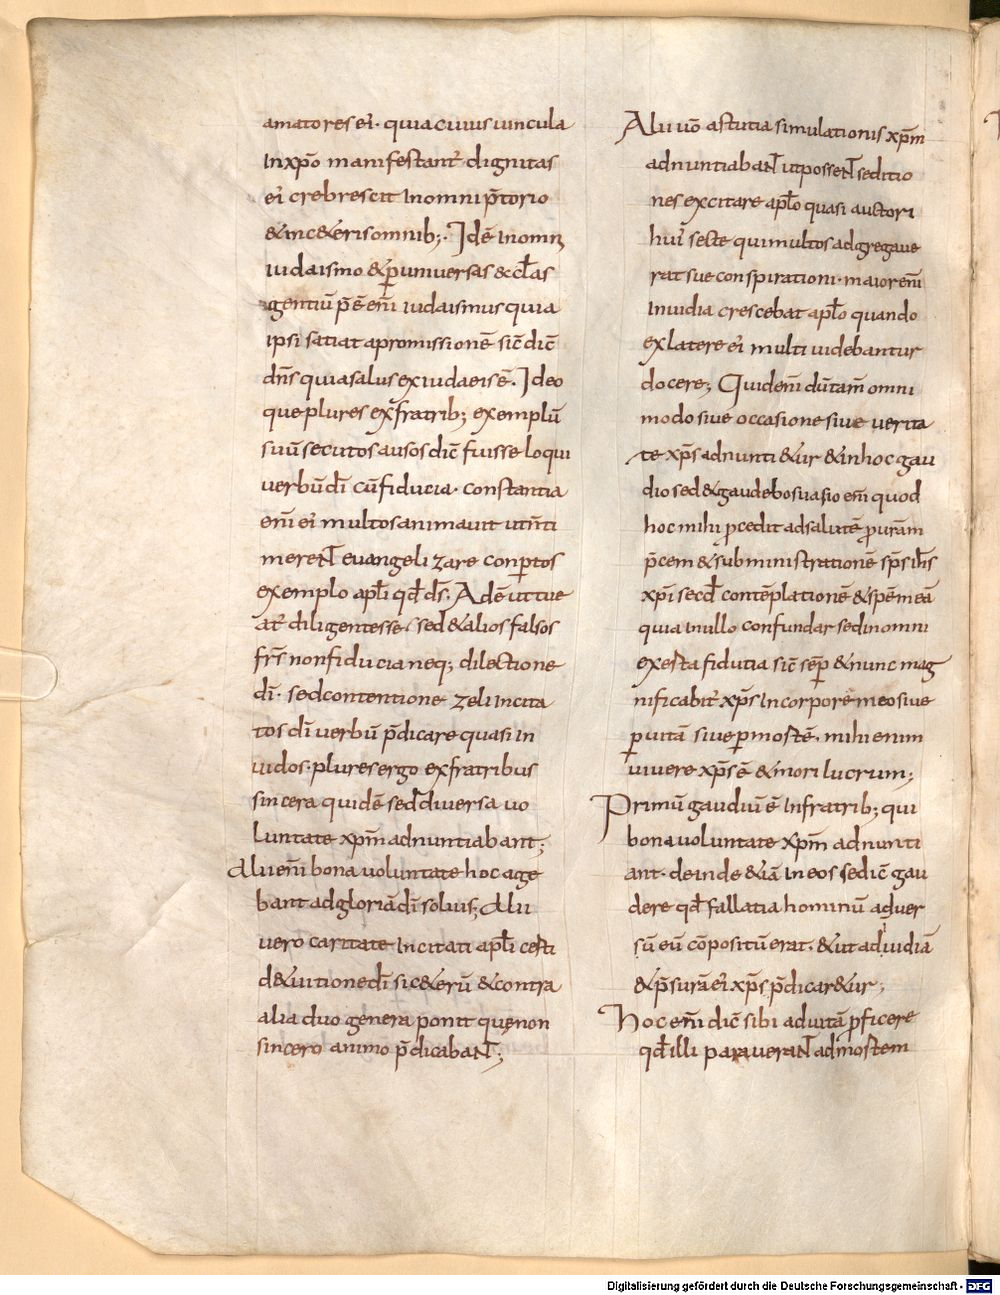 amatores ei· quia cuius uincula
Inxpō manifestant᷑ dignitas
ei᷑ crebrescit Inomni p̄torio
&inc&eris omnib;· Idē Inomn
iudaismo &puniuersas &cl̄as
gentiū p̄ē enī iudaismus quia
ipsi satiat apromissionē sic̄ dic̄
dn̄s quiasalus exiudaeis ē. Ideo
que plures exfratrib; exemplū
suū secutos ausos dic̄ fuisse loqui
uerbū dī cū fiducia· constantia
enī ei᷑ multos animauit ut
merent euangelizare
exemplo apl̄i qd̄ ds̄. Adē ut tue
at᷑ diligentesse· sed &alios falsos
fr̄s nonfiducia neq; dilectione
dī· sed contentione zeli Incita
tos dī uerbū p̄dicare quasi In
uidos· plures ergo exfratribus
sincera quidē sed diuersa uo
luntate xp̄m adnuntiabant;
Alii enī bona uoluntate hoc age
bant adgloriā dī solius; Alii
uero caritate Incitati apl̄i cesti
d&uitione dī sic &erū &contra
alia duo genera ponit quę non
sincero animo p̄dicabant;
Alii uō astutia simulationis xp̄m
adnuntiabant utpossent seditio
nes excitare apl̄o quasi auctori
hui᷑ secte qui multos adgregaue
rat sue conspirationi· maior enī
Inuidia crescebat apl̄o quando
exlatere ei᷑ multi uidebantur
docere; Quid enī dū tam̄ omni
modo siue occasione siue uerita
te xp̄s adnunti&ur &inhoc gau
dio sed &gaudebo suasio enī quod
hoc mihi pcedit adsalutē puram̄
p̄cem &subministrationē sp̄s ih̄s
xp̄i secd̄ contēplationē &spē meā
quia Innullo confundar sed inomni
exesta fiducia sic̄ sēp &nunc mag
nificabit᷑ xp̄s Incorpore meo siue
p uitā siue p mortē· mihi enim
uiuere xp̄s ē &mori lucrum;
Primū gaudiū ē Infratrib; qui
bona uoluntate xp̄m adnunti
ant· deinde &iā In eos sed ic̄ gau
dere qd̄ fallatia hominū aduer
sū eū cōpositū erat· &ut aduidiā
&p̄surā ei᷑ xp̄s p̄dicar&ur;
hoc enī dic̄ sibi aduitā pficere
qd̄ illi parauerant admortem
Digitalisierung gefördert durch die Deutsche Forschungsgemeinschaft - DFG